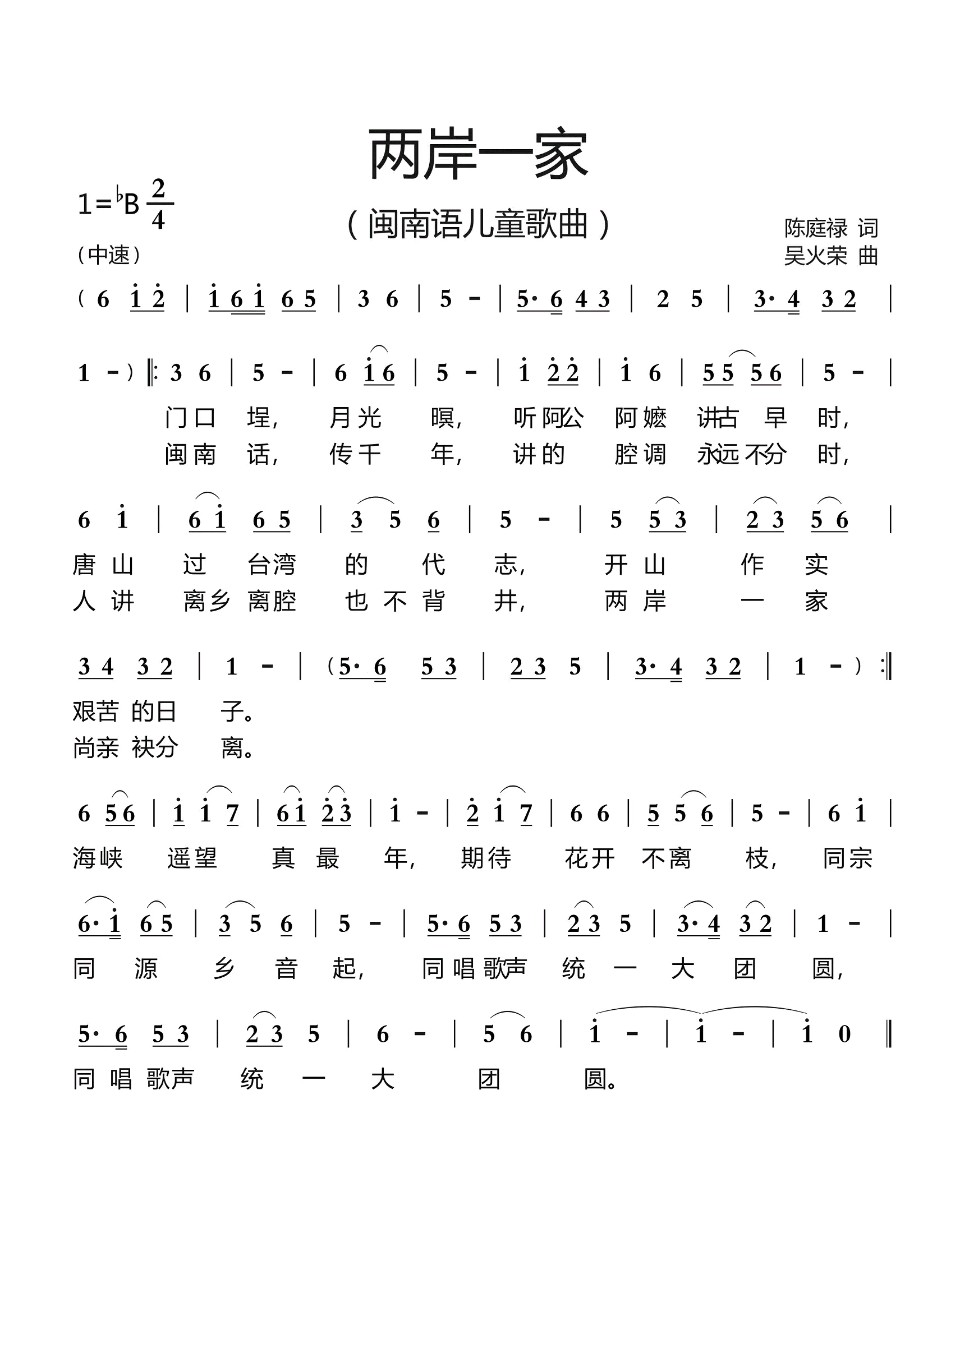 两岸一家
1=♭B 2/4
（闽南语儿童歌曲）
陈庭禄 词
（中速）
吴火荣 曲
（6 i̇ 2̇ | i̇ 6 i̇ 6 5 | 3 6 | 5 - | 5· 6 4 3 | 2 5 | 3· 4 3 2 |
1 - ）‖: 3 6 | 5 - | 6 i̇ 6 | 5 - | i̇ 2̇ 2̇ | i̇ 6 | 5 5 5 6 | 5 - |
门口 埕， 月光 暝， 听阿公 阿嬷 讲古 早 时，
闽南 话， 传千 年， 讲的 腔调 永远不分 时，
6 i̇ | 6 i̇ 6 5 | 3 5 6 | 5 - | 5 5 3 | 2 3 5 6 |
唐山 过 台湾 的 代 志， 开山 作 实
人讲 离乡离腔 也不背 井， 两岸 一 家
3 4 3 2 | 1 - | （5· 6 5 3 | 2 3 5 | 3· 4 3 2 | 1 - ）:‖
艰苦的日 子。
尚亲袂分 离。
6 5 6 | i̇ i̇ 7 | 6 i̇ 2̇ 3̇ | i̇ - | 2̇ i̇ 7 | 6 6 | 5 5 6 | 5 - | 6 i̇ |
海峡 遥望 真最 年， 期待 花开 不离 枝， 同宗
6· i̇ 6 5 | 3 5 6 | 5 - | 5· 6 5 3 | 2 3 5 | 3· 4 3 2 | 1 - |
同 源 乡 音 起， 同唱歌声 统一 大 团 圆，
5· 6 5 3 | 2 3 5 | 6 - | 5 6 | i̇ - | i̇ - | i̇ 0 ‖
同唱歌声 统一 大 团 圆。